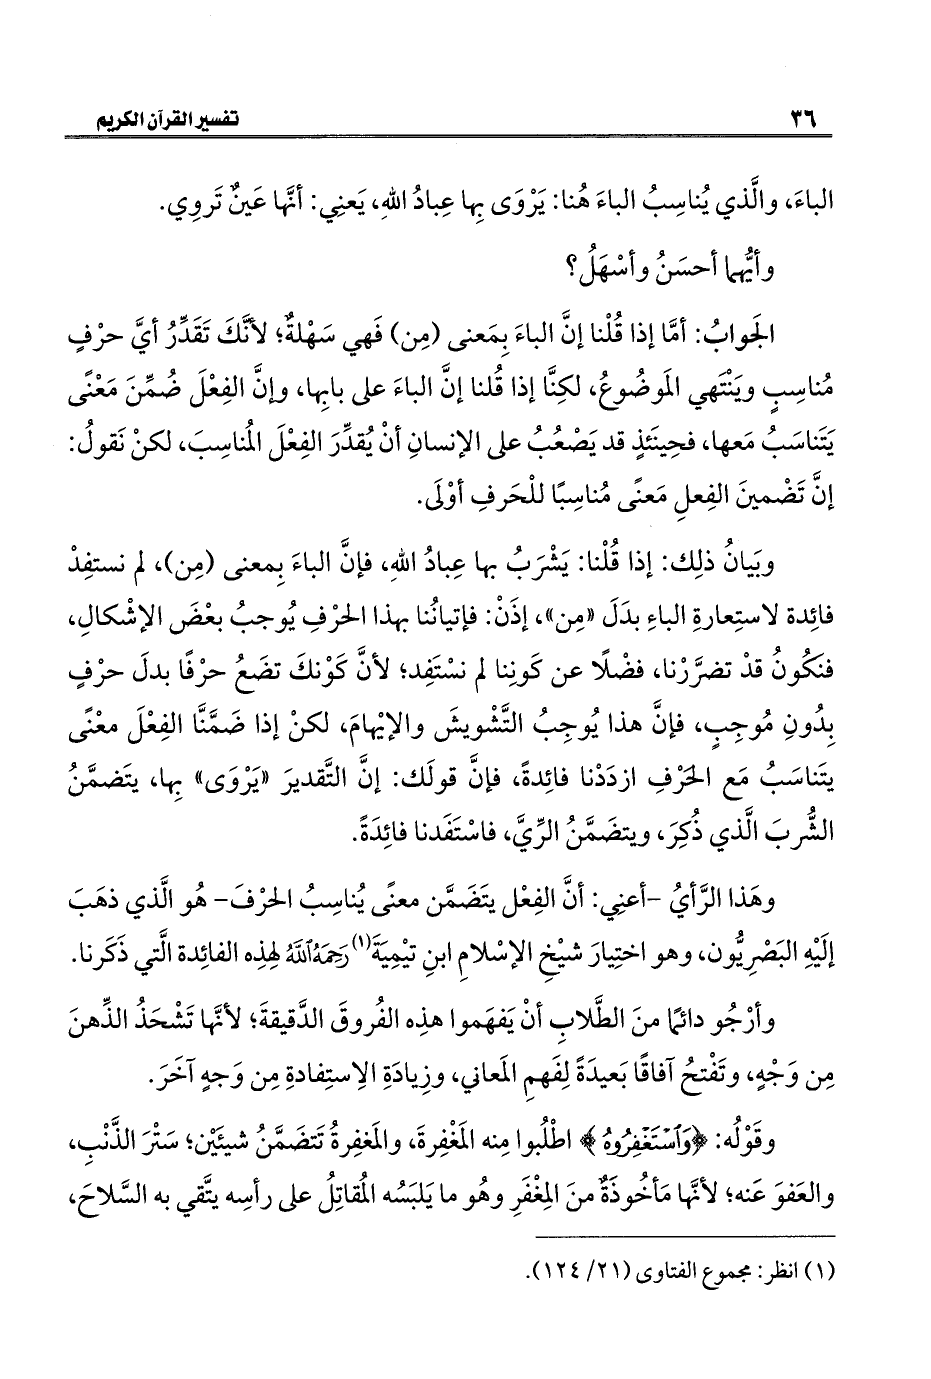 ٣٦ تفسير القرآن الكريم
الباءَ، والَّذي يُناسِبُ الباءَ هُنا: يَرْوَى بِها عِبادُ اللهِ، يَعنِي: أنَّها عَينٌ تَروِي.
وأيُّهما أحسَنُ وأسْهَلُ؟
الجَوابُ: أمَّا إذا قُلْنا إنَّ الباءَ بِمَعنى (مِن) فَهي سَهْلةٌ؛ لأنَّكَ تَقَدِّرُ أيَّ حرْفٍ
مُناسِبٍ ويَنْتَهي المَوضُوعُ، لكِنَّا إذا قُلنا إنَّ الباءَ على بابِها، وإنَّ الفِعْلَ ضُمِّنَ مَعْنًى
يَتَناسَبُ مَعها، فحِينَئذٍ قد يَصْعُبُ على الإنسانِ أنْ يُقدِّرَ الفِعْلَ المُناسِبَ، لكنْ نَقولُ:
إنَّ تَضْمينَ الفِعلِ مَعنًى مُناسِبًا للْحَرفِ أوْلَى.
وبَيانُ ذلِك: إذا قُلْنا: يَشْرَبُ بها عِبادُ اللهِ، فإنَّ الباءَ بِمعنى (مِن)، لم نستفِدْ
فائِدة لاستِعارةِ الباءِ بدَلَ «مِن»، إذَنْ: فإتيانُنا بهذا الحَرْفِ يُوجبُ بعْضَ الإشْكالِ،
فنكُونُ قدْ تضرَّرْنا، فضْلًا عن كَونِنا لم نسْتَفِد؛ لأنَّ كَوْنكَ تضَعُ حرْفًا بدلَ حرْفٍ
بِدُونِ مُوجبٍ، فإنَّ هذا يُوجِبُ التَّشْويشَ والإيْهامَ، لكنْ إذا ضَمَّنَّا الفِعْلَ معْنًى
يتَناسَبُ مَع الحَرْفِ ازدَدْنا فائِدةً، فإنَّ قولَك: إنَّ التَّقديرَ «يَرْوَى» بِها، يتَضمَّنُ
الشُّربَ الَّذي ذُكِرَ، ويتضَمَّنُ الرِّيَّ، فاسْتَفَدنا فائِدَةً.
وهَذا الرَّأيُ -أعنِي: أنَّ الفِعْلَ يتَضَمَّن معنًى يُناسِبُ الحَرْفَ- هُو الَّذي ذهَبَ
إلَيْهِ البَصْرِيُّون، وهو اختِيارَ شيْخِ الإسْلامِ ابنِ تيْمِيَةَ(١) رَحِمَهُ اللهُ لهِذِه الفائِدة الَّتي ذَكَرنا.
وأرْجُو دائمًا منَ الطَّلابِ أنْ يَفهَموا هذِه الفُروقَ الدَّقيقةَ؛ لأنَّها تَشْحَذُ الذِّهنَ
مِن وَجْهٍ، وتَفْتحُ آفاقًا بَعيدَةً لِفَهمِ المَعاني، وزِيادَةِ الاِستِفادةِ مِن وَجهٍ آخَرَ.
وقَوْلُه: ﴿وَٱسْتَغْفِرُوهُ﴾ اطْلُبوا مِنه المَغْفِرةَ، والمَغفِرةُ تَتضمَّنُ شيئَيْن؛ سَتْرَ الذَّنْبِ،
والعَفوَ عَنه؛ لأنَّها مَأخُوذَةٌ منَ المِغْفَرِ وهُو ما يَلبَسُه المُقاتِلُ على رأسِه يتَّقي به السَّلاحَ،
(١) انظر: مجموع الفتاوى (٢١/ ١٢٤).